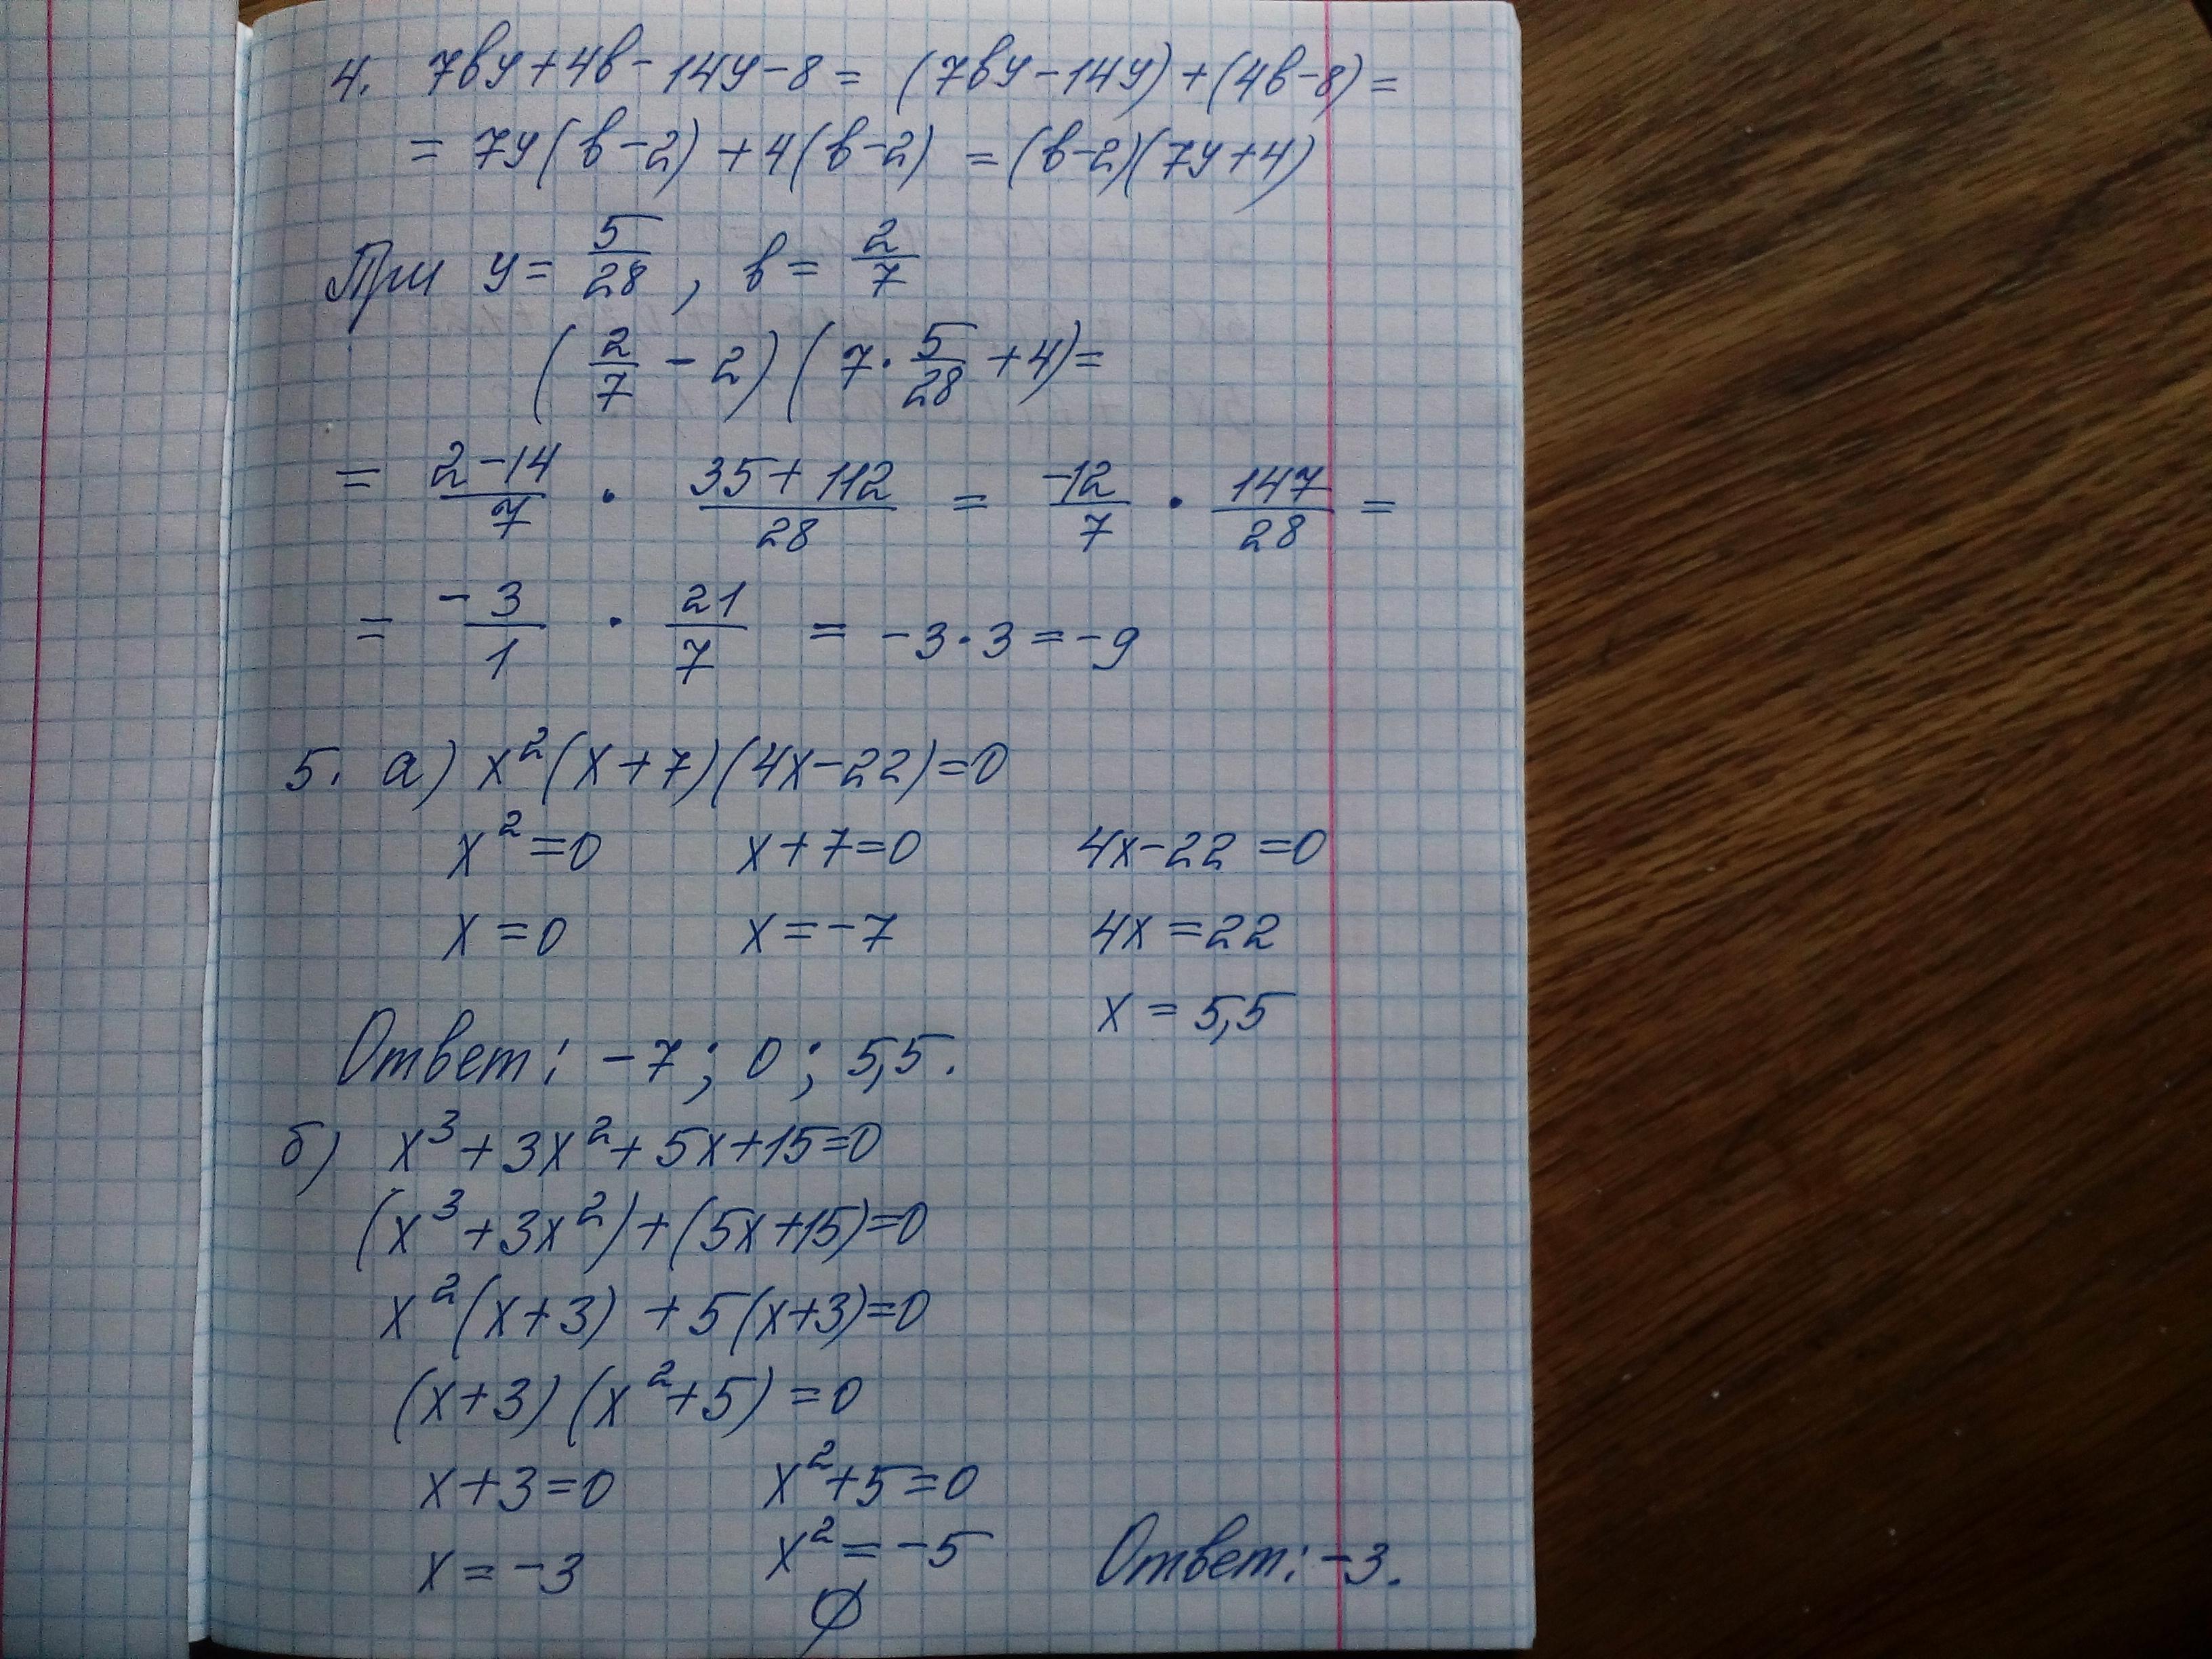 4. 7by+4b-14y-8 = (7by-14y)+(4b-8)=
= 7y(b-2)+4(b-2) = (b-2)(7y+4)
При y = 5/28, b = 2/7
(2/7 - 2)(7·5/28 + 4)=
= (2-14)/7 · (35+112)/28 = -12/7 · 147/28 =
= -3/1 · 21/7 = -3·3 = -9
5. а) x²(x+7)(4x-22)=0
x²=0 x+7=0 4x-22=0
x=0 x=-7 4x=22
x=5,5
Ответ: -7; 0; 5,5.
б) x³+3x²+5x+15=0
(x³+3x²)+(5x+15)=0
x²(x+3)+5(x+3)=0
(x+3)(x²+5)=0
x+3=0 x²+5=0
x=-3 x²=-5 Ответ: -3.
∅